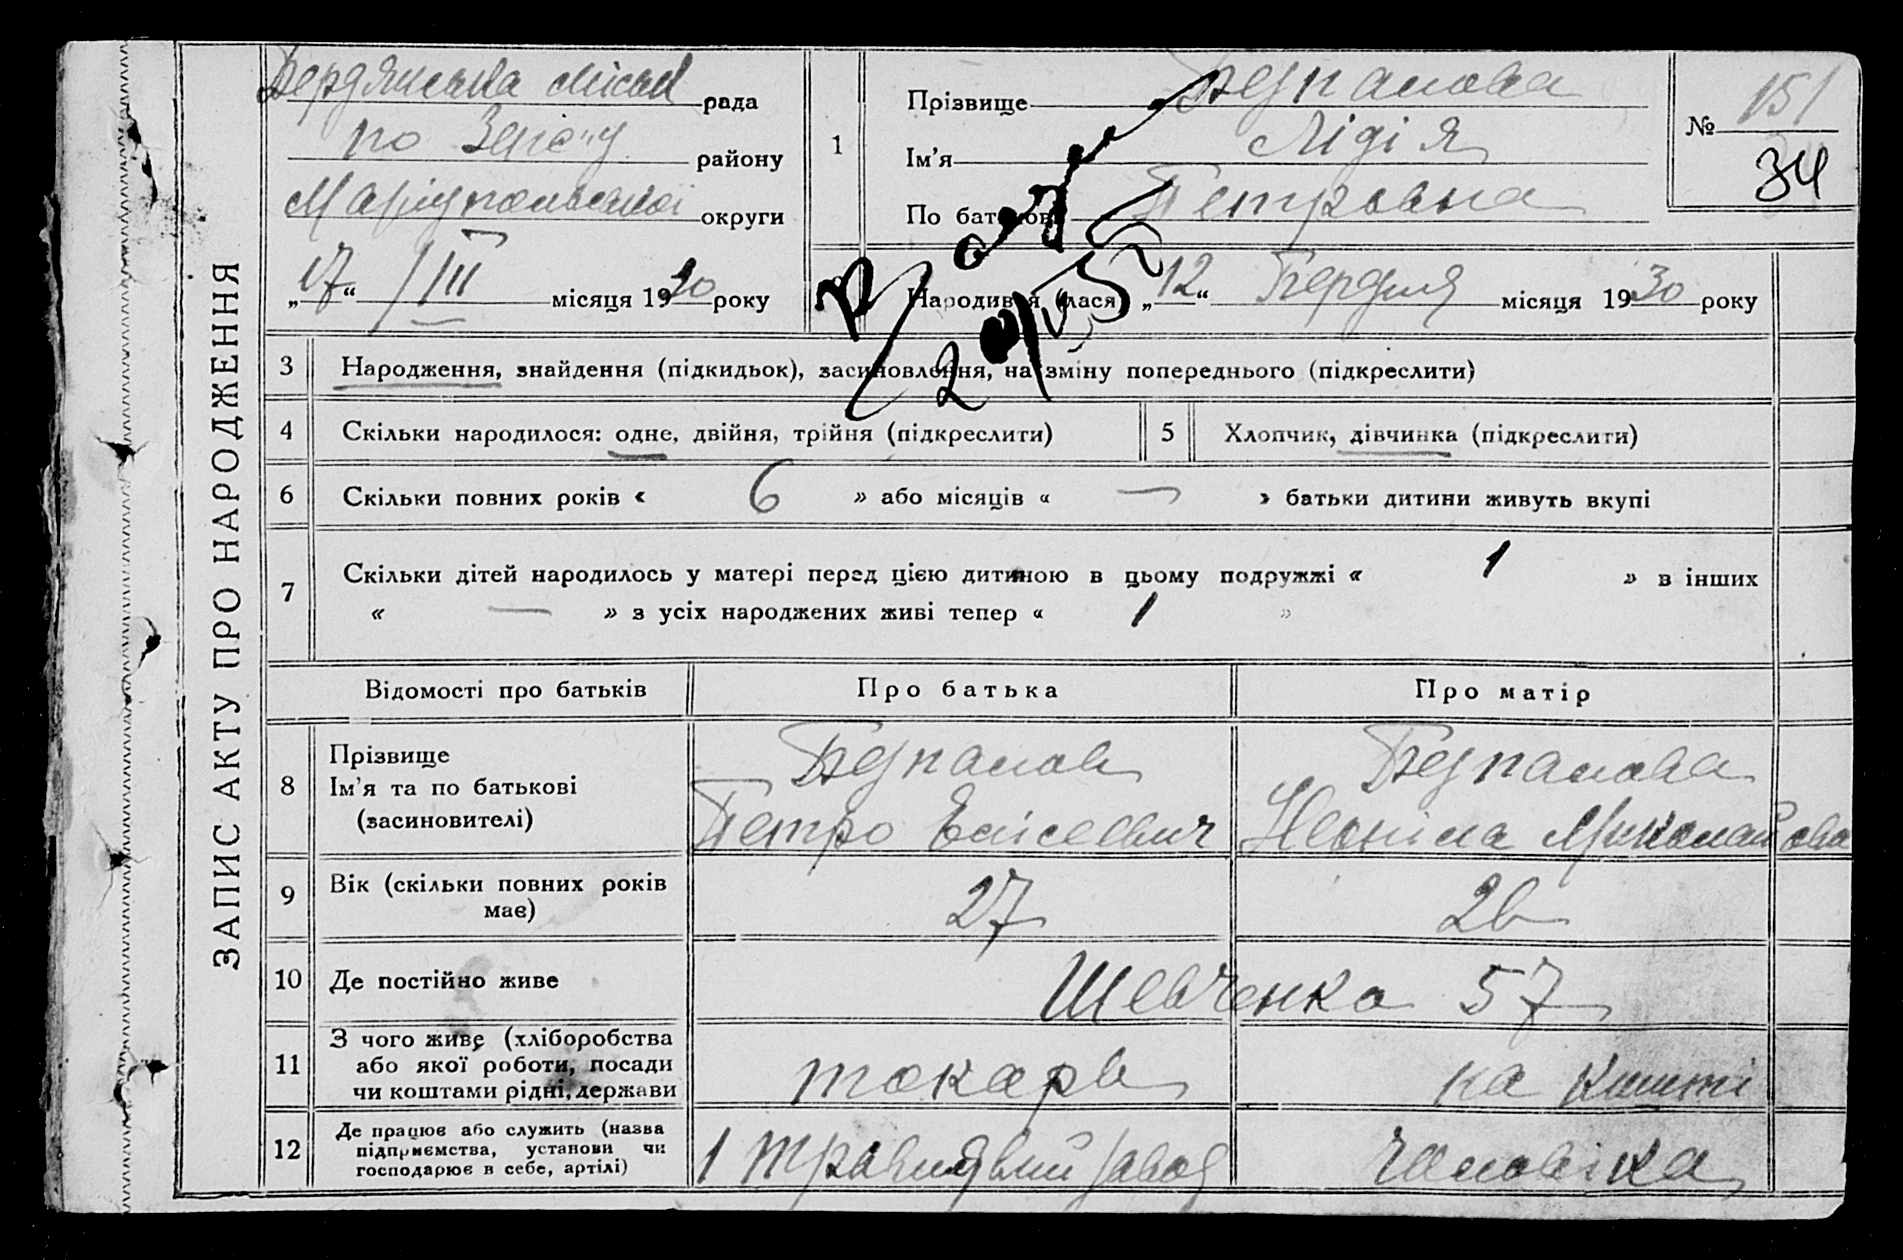 ЗАПИС АКТУ ПРО НАРОДЖЕННЯ
Бердянська міська рада
по району
Маріупольської округи
„17“ III місяця 1930 року
1
Прізвище Безпалова
Ім’я Лідія
По батькові Петровна
№ 151
34
Народився (лася) „12“ Березня місяця 1930 року
3 Народження, знайдення (підкидьок), засиновлення, на зміну попереднього (підкреслити)
4 Скільки народилося: одне, двійня, трійня (підкреслити) 5 Хлопчик, дівчинка (підкреслити)
6 Скільки повних років « 6 » або місяців « — » батьки дитини живуть вкупі
7 Скільки дітей народилось у матері перед цією дитиною в цьому подружжі « 1 » в інших
« — » з усіх народжених живі тепер « 1 »
Відомості про батьків Про батька Про матір
8 Прізвище Безпалов Безпалова
Ім’я та по батькові
(засиновителі) Петро Миколаївна
9 Вік (скільки повних років має) 27 26
10 Де постійно живе Шевченка 57
11 З чого живе (хліборобства
або якої роботи, посади
чи коштами рідні, держави токарь на кошті
12 Де працює або служить (назва
підприємства, установи чи
господарює в себе, артілі) 1 завод чоловіка